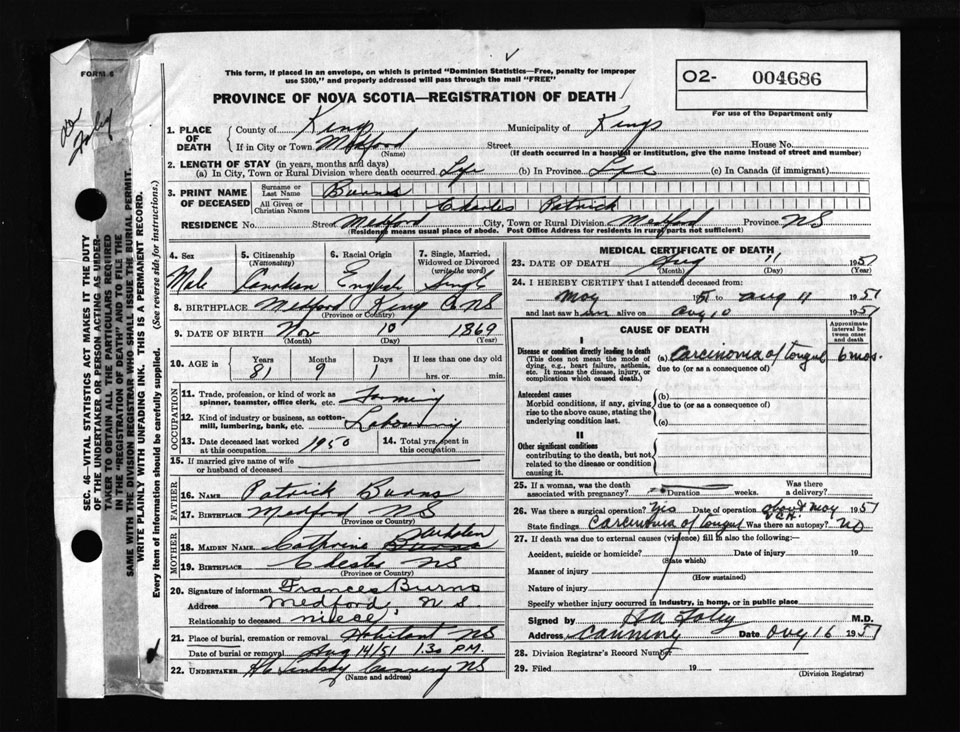 FORM 6
This form, if placed in an envelope, on which is printed "Dominion Statistics—Free, penalty for improper
use $300," and properly addressed will pass through the mail "FREE"
O2- 004686
For use of the Department only
PROVINCE OF NOVA SCOTIA—REGISTRATION OF DEATH
1. PLACE OF DEATH { County of Kings Municipality of Kings
If in City or Town Medford Street House No.
(Name) (If death occurred in a hospital or institution, give the name instead of street and number)
2. LENGTH OF STAY (in years, months and days)
(a) In City, Town or Rural Division where death occurred Life (b) In Province Life (c) In Canada (if immigrant)
3. PRINT NAME OF DECEASED { Surname or Last Name Burns
All Given or Christian Names Charles Patrick
RESIDENCE No. Street Medford City, Town or Rural Division Medford Province NS
(Residence means usual place of abode. Post Office Address for residents in rural parts not sufficient)
4. Sex Male
5. Citizenship (Nationality) Canadian
6. Racial Origin English
7. Single, Married, Widowed or Divorced (write the word) Single
8. BIRTHPLACE Medford Kings Co NS
(Province or Country)
9. DATE OF BIRTH Nov 10 1869
(Month) (Day) (Year)
10. AGE in Years Months Days If less than one day old
81 9 1 hrs. or min.
OCCUPATION
11. Trade, profession, or kind of work as spinner, teamster, office clerk, etc. Farming
12. Kind of industry or business, as cotton-mill, lumbering, bank, etc. Labouring
13. Date deceased last worked at this occupation 1950
14. Total yrs. spent in this occupation
15. If married give name of wife or husband of deceased
FATHER
16. NAME Patrick Burns
17. BIRTHPLACE Medford NS
(Province or Country)
MOTHER
18. MAIDEN NAME Cathrine Burns
19. BIRTHPLACE Chester NS
(Province or Country)
20. Signature of informant Frances Burns
Address Medford, N.S.
Relationship to deceased niece
21. Place of burial, cremation or removal Habitant NS
Date of burial or removal Aug 14/51 1.30 P.M.
22. UNDERTAKER Canning NS
(Name and address)
MEDICAL CERTIFICATE OF DEATH
23. DATE OF DEATH Aug 11 1951
(Month) (Day) (Year)
24. I HEREBY CERTIFY that I attended deceased from:
May 1951 to Aug 11 1951
and last saw him alive on Aug 10 1951
CAUSE OF DEATH
Approximate interval between onset and death
I
Disease or condition directly leading to death (a) Carcinoma of tongue 6 mos.
(This does not mean the mode of dying, e.g., heart failure, asthenia, etc. It means the disease, injury, or complication which caused death.)
due to (or as a consequence of)
Antecedent causes (b)
Morbid conditions, if any, giving rise to the above cause, stating the underlying condition last.
due to (or as a consequence of)
(c)
II
Other significant conditions
contributing to the death, but not related to the disease or condition causing it.
25. If a woman, was the death associated with pregnancy? Duration weeks. Was there a delivery?
26. Was there a surgical operation? Yes Date of operation about May 1951
State findings Carcinoma of tongue Was there an autopsy? NO
27. If death was due to external causes (violence) fill in also the following:—
Accident, suicide or homicide? Date of injury 19
(State which)
Manner of injury
(How sustained)
Nature of injury
Specify whether injury occurred in industry, in home, or in public place
Signed by H A Foley M.D.
Address Canning Date Aug 16 1951
28. Division Registrar's Record Number
29. Filed 19
(Division Registrar)
SEC. 46—VITAL STATISTICS ACT MAKES IT THE DUTY
OF THE UNDERTAKER OR PERSON ACTING AS UNDER-
TAKER TO OBTAIN ALL THE PARTICULARS REQUIRED
IN THE "REGISTRATION OF DEATH" AND TO FILE THE
SAME WITH THE DIVISION REGISTRAR WHO SHALL ISSUE THE BURIAL PERMIT.
WRITE PLAINLY WITH UNFADING INK. THIS IS A PERMANENT RECORD.
Every item of information should be carefully supplied. (See reverse side for instructions.)